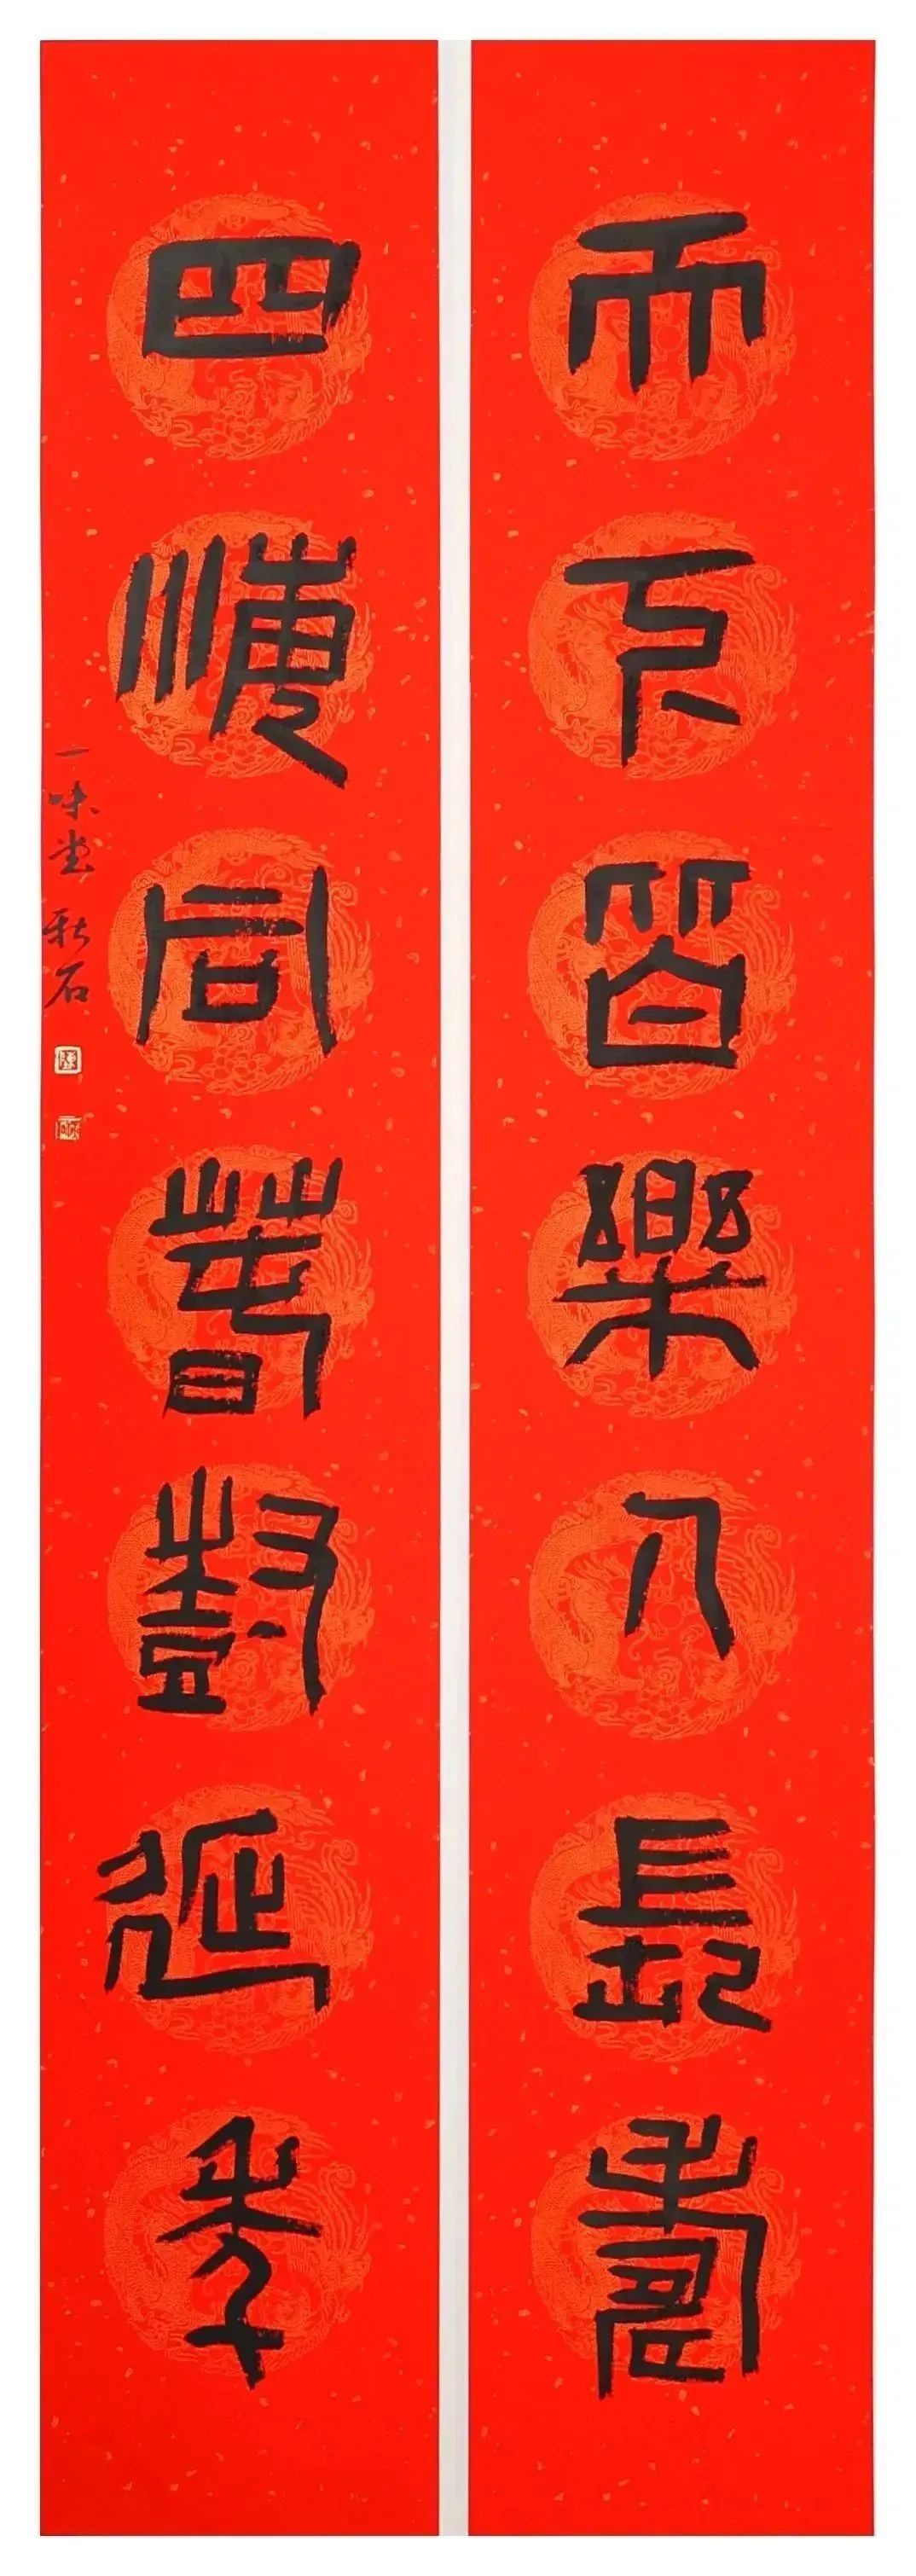 天下皆樂人長壽
四海同春尌延年
一味堂 秋石